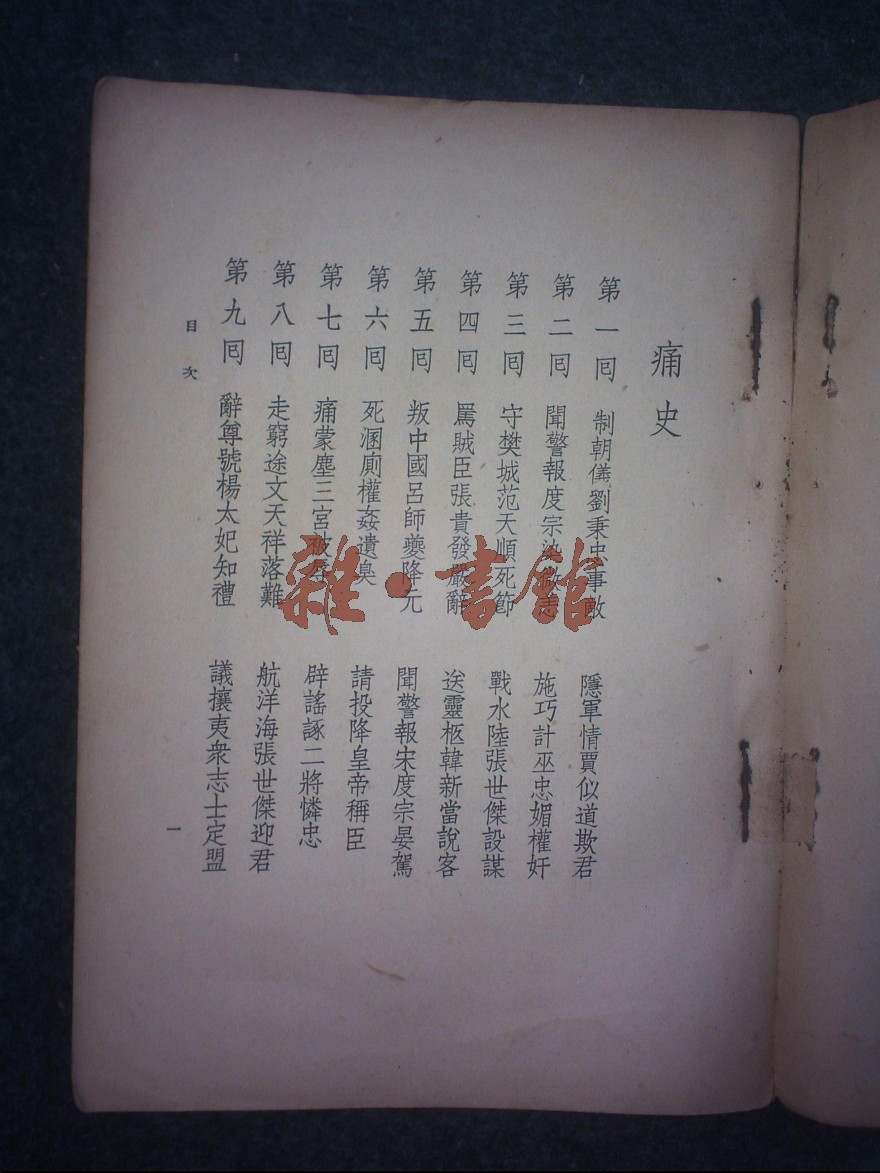 痛史
第一囘 制朝儀劉秉忠事敵 隱軍情賈似道欺君
第二囘 聞警報度宗染微恙 施巧計巫忠媚權奸
第三囘 守樊城范天順死節 戰水陸張世傑設謀
第四囘 罵賊臣張貴發嚴辭 送靈柩韓新當說客
第五囘 叛中國呂師夔降元 聞警報宋度宗晏駕
第六囘 死溷廁權姦遺臭 請投降皇帝稱臣
第七囘 痛蒙塵三宮被辱 辟謠諑二將憐忠
第八囘 走窮途文天祥落難 航洋海張世傑迎君
第九囘 辭尊號楊太妃知禮 議攘夷衆志士定盟
目次 一
雜·書館